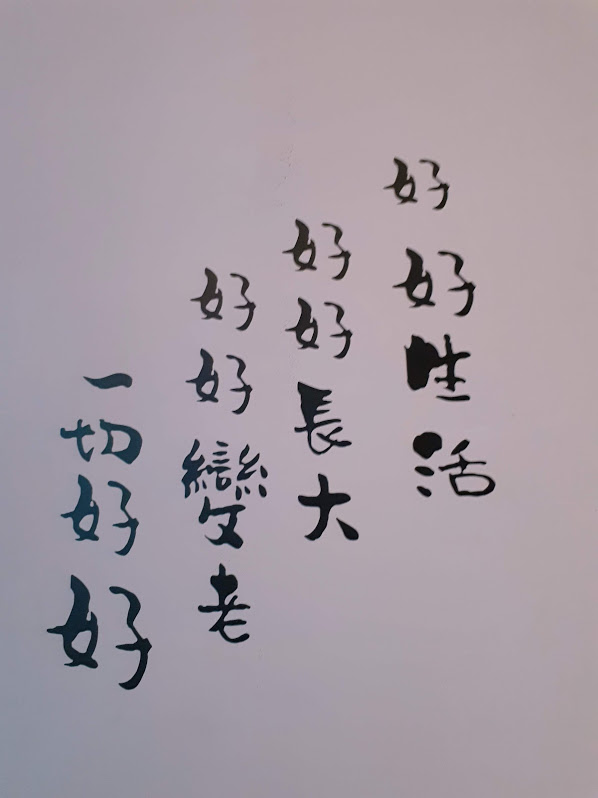 好好生活
好好長大
好好變老
一切好好